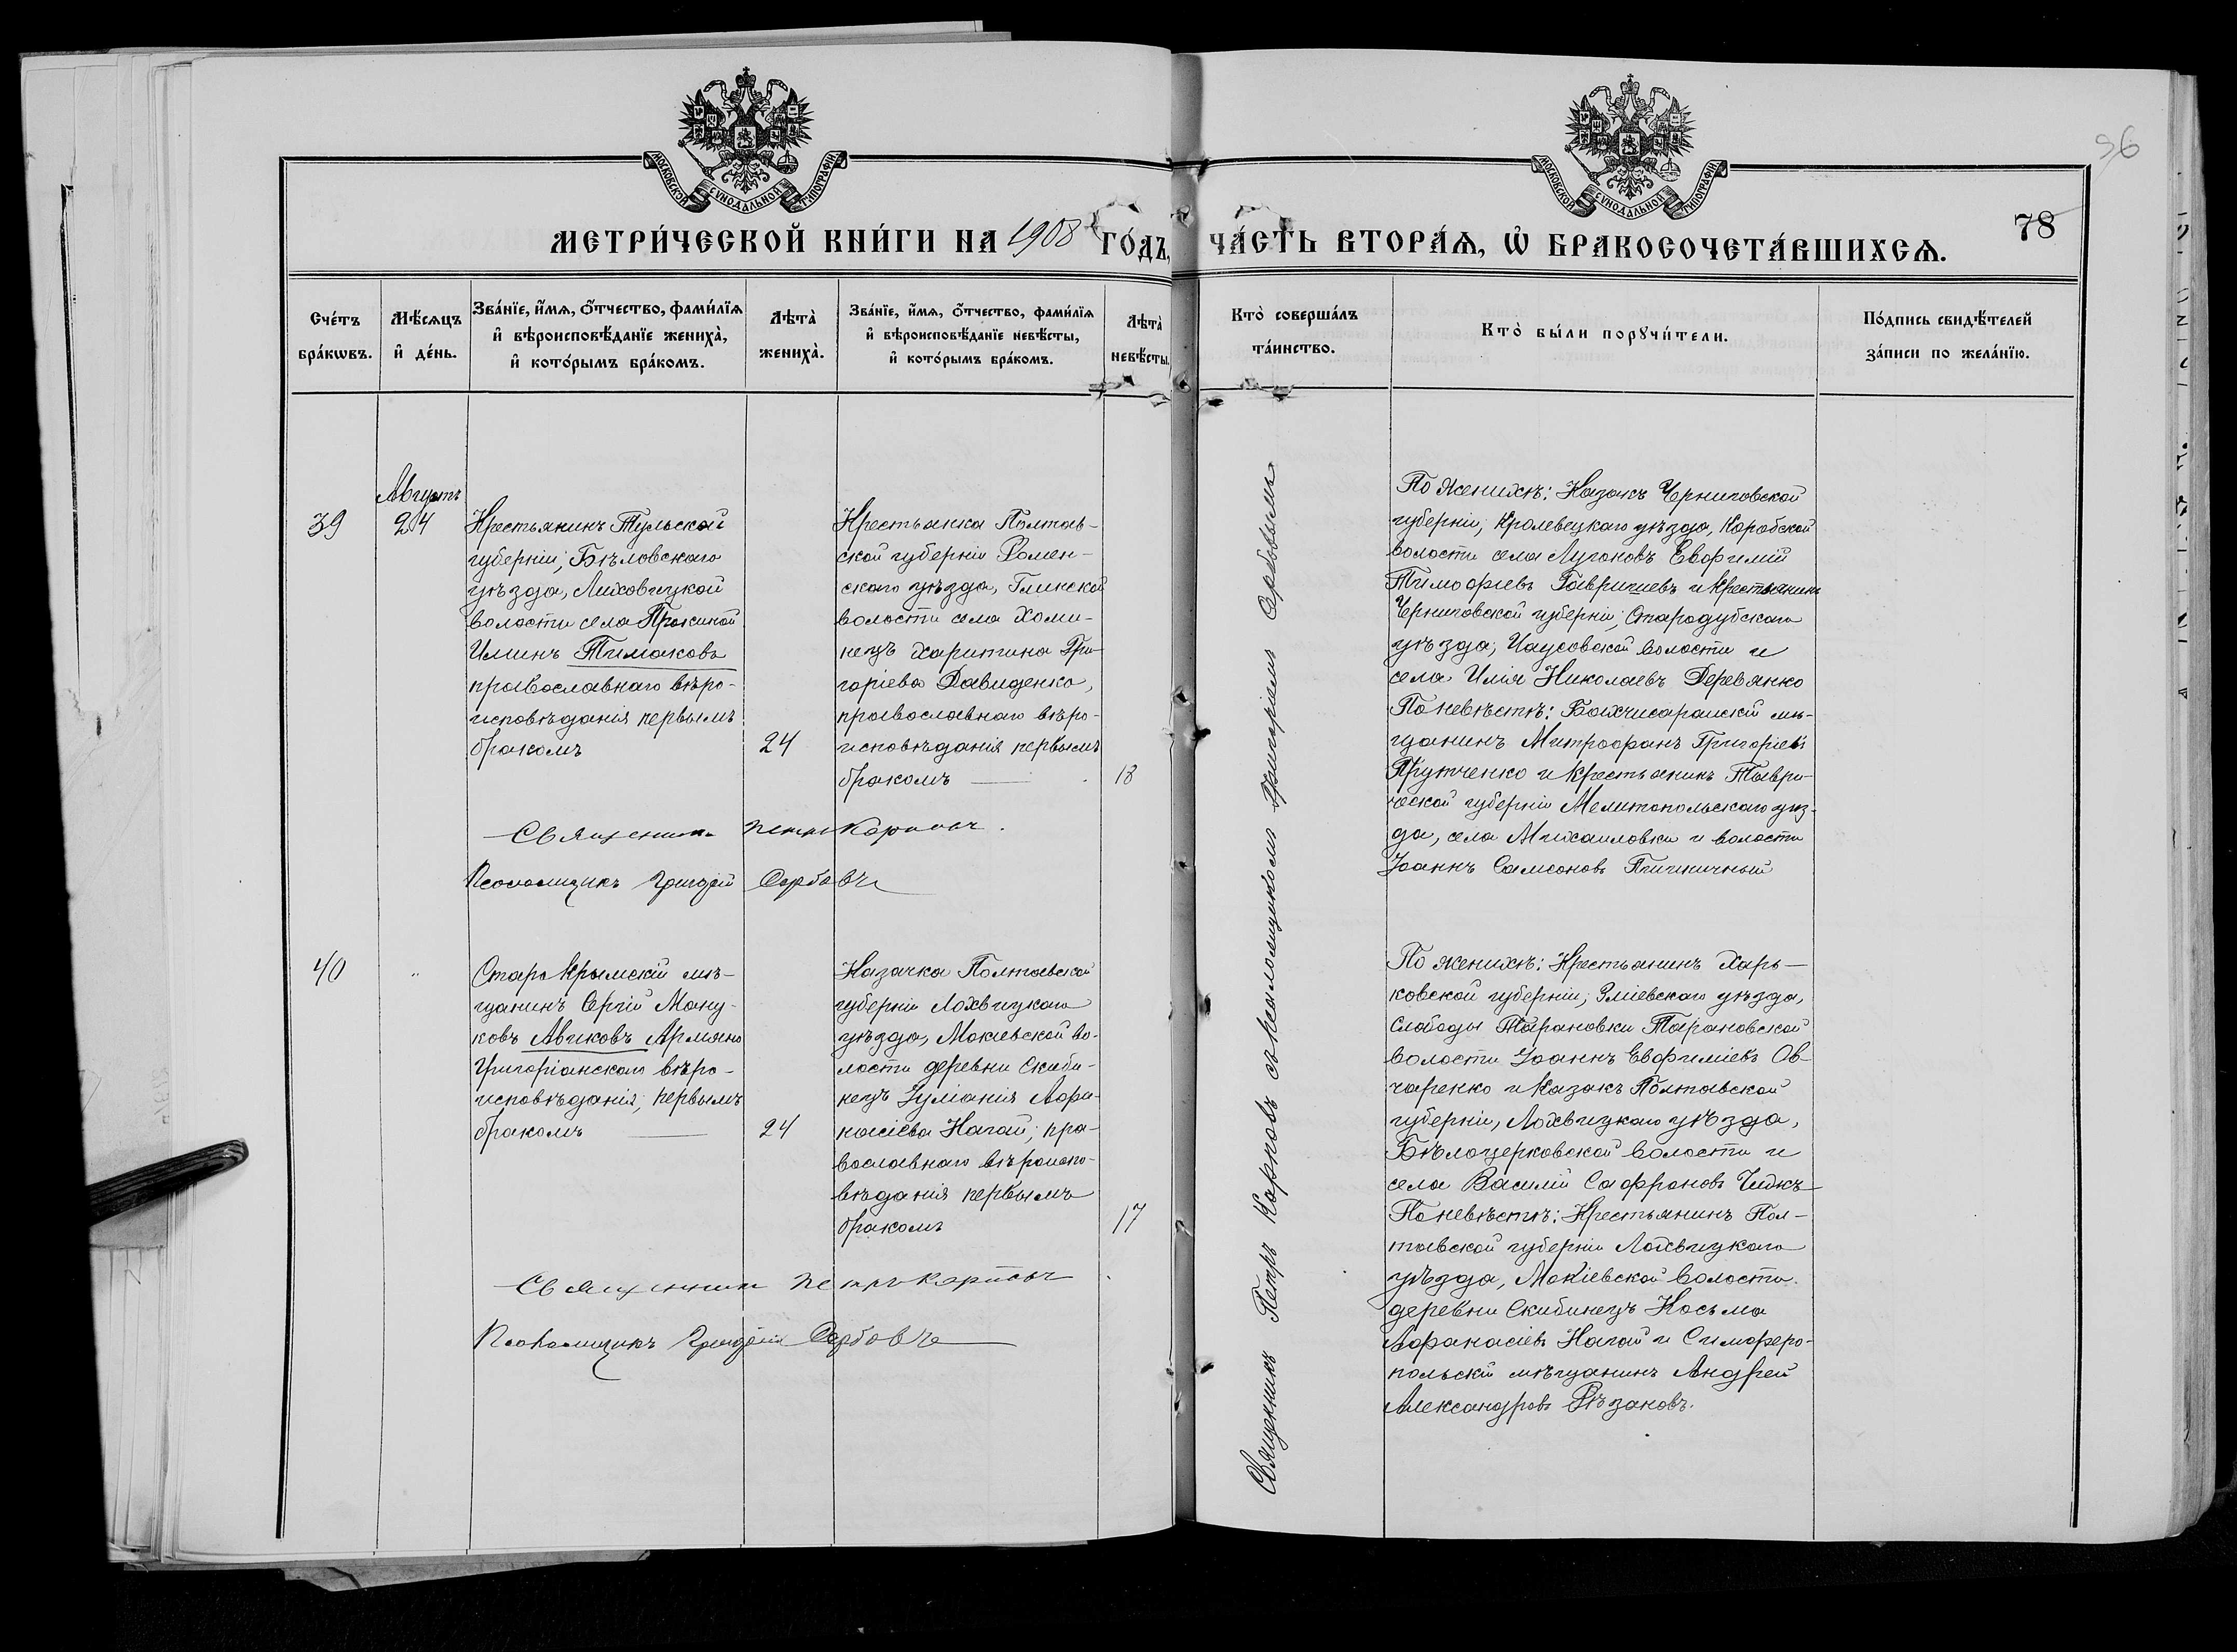 МОСКОВСКОЙ СѴНОДАЛЬНОЙ ТИПОГРАФІИ
МОСКОВСКОЙ СѴНОДАЛЬНОЙ ТИПОГРАФІИ
96
78
МЕТРИ́ЧЕСКОЙ КНИ́ГИ НА 1908 ГО́ДЪ, ЧА́СТЬ ВТОРА́Ѧ, Ѡ҆ БРАКОСОЧЕТА́ВШИХСѦ.
Сче́тъ
бра́кѡвъ.
Мѣ́сѧцъ
и҆ де́нь.
Зва́нїе, и҆́мѧ, ѻ҆́тчество, фами́лїѧ
и҆ вѣроисповѣ́данїе жениха̀,
и҆ кото́рымъ бра́комъ.
Лѣта̀
жениха̀.
Зва́нїе, и҆́мѧ, ѻ҆́тчество, фами́лїѧ
и҆ вѣроисповѣ́данїе невѣ́сты,
и҆ кото́рымъ бра́комъ.
Лѣта̀
невѣ́сты.
Кто̀ соверша́лъ
та́инство.
Кто̀ бы́ли порꙋчи́тели.
По́дпись свидѣ́телей
за́писи по жела́нїю.
39
Августъ
24
Крестьянинъ Тульской
губерніи, Бѣловскаго
уѣзда, Лиховицкой
волости села
Илиинъ Тимаковъ
православнаго вѣро-
исповѣданія первымъ
бракомъ
24
Крестьянка Полтав-
ской губерніи Ромен-
скаго уѣзда, Глинской
волости села Хоми-
нецъ Харитина Гри-
горіева Давиденко,
православнаго вѣро-
исповѣданія первымъ
бракомъ —
18
Священникъ Петръ Карповъ.
Псаломщикъ Григорій Сербовъ
Священникъ Петръ Карповъ съ псаломщикомъ Григоріемъ Сербовымъ
По женихѣ: Казакъ Черниговской
губерніи, Кролевецкаго уѣзда, Коробской
волости села Евфимій
Тимофѣевъ и крестьянинъ
Черниговской губерніи, Стародубскаго
уѣзда, волости и
села Илія Николаевъ Деревянко
По невѣстѣ: Бахчисарайскій мѣ-
щанинъ Митрофанъ Григоріевъ
Прутченко и крестьянинъ Таври-
ческой губерніи Мелитопольскаго уѣз-
да, села Михаиловки и волости
Іоаннъ Самсоновъ
40
"
Старокрымскій мѣ-
щанинъ СергійМану-
ковъ Авиковъ Армяно
Григоріанскаго вѣро-
исповѣданія, первымъ
бракомъ —
24
Казачка Полтавской
губерніи Лохвицкаго
уѣзда, Мокіевской во-
лости деревни Скиби-
нецъ Іуліанія Афа-
насіева Нагай, пра-
вославнаго вѣроиспо-
вѣданія первымъ
бракомъ
17
Священникъ Петръ Карповъ
Псаломщикъ Григорій Сербовъ
По женихѣ: Крестьянинъ Харь-
ковской губерніи, Зміевскаго уѣзда,
Слободы Тарановки Тарановской
волости Іоаннъ Евфиміевъ Ов-
чаренко и казакъ Полтавской
губерніи, Лохвицкаго уѣзда,
Бѣлоцерковской волости и
села Василій Сафроновъ
По невѣстѣ: Крестьянинъ Пол-
тавской губерніи Лохвицкаго
уѣзда, Мокіевской волости
деревни Скибинецъ Косьма
Афанасіевъ Нагай и Симферо-
польскій мѣщанинъ Андрей
Александровъ Рѣзановъ.